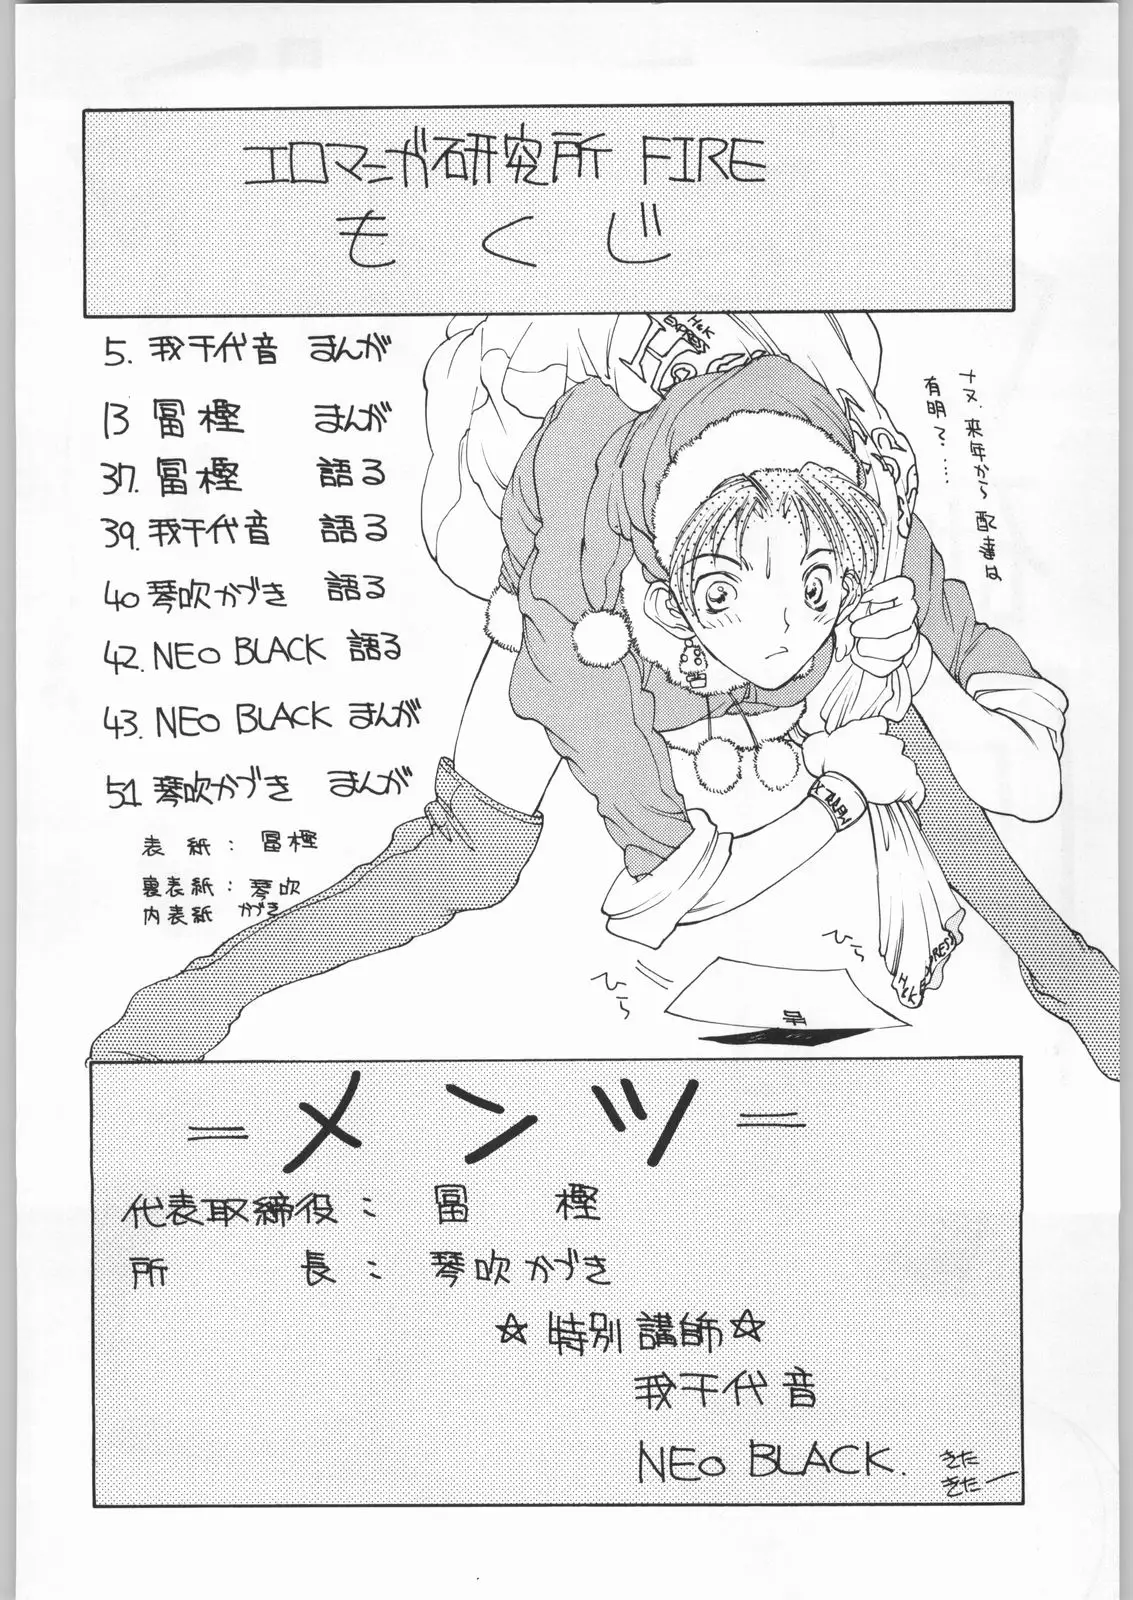 エロマニガ研究所 FIRE
もくじ
5. 我千代音 まんが
13 冨樫 まんが
37. 冨樫 語る
39. 我千代音 語る
40 琴吹かづき 語る
42. NEO BLACK 語る
43. NEO BLACK まんが
51 琴吹かづき まんが
表紙: 冨樫
裏表紙: 琴吹
内表紙 かづき
H&K
EXPRESS
ナヌ、来年から配達は
有明?……
MERRY X
H&K EXPRESS
ひら
ひら
=メンツ=
代表取締役: 冨樫
所長: 琴吹かづき
☆特別講師☆
我千代音
NEO BLACK.
きた
きたー